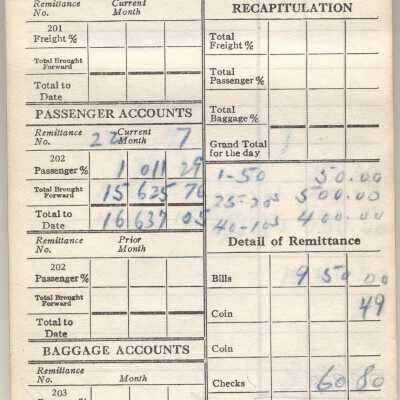 Remittance Current
No. Month
201
Freight %
Total Brought
Forward
Total to
Date
PASSENGER ACCOUNTS
Remittance 22 Current 7
No. Month
202
Passenger % 1 011 29
Total Brought
Forward 15 625 76
Total to
Date 16 637 05
Remittance Prior
No. Month
202
Passenger %
Total Brought
Forward
Total to
Date
BAGGAGE ACCOUNTS
Remittance
No. Month
203
RECAPITULATION
Total
Freight %
Total
Passenger %
Total
Baggage %
Grand Total
for the day
1-50 50.00
25-20s 500.00
40-10s 400.00
Detail of Remittance
Bills 9 50 00
Coin 49
Coin
Checks 60 80